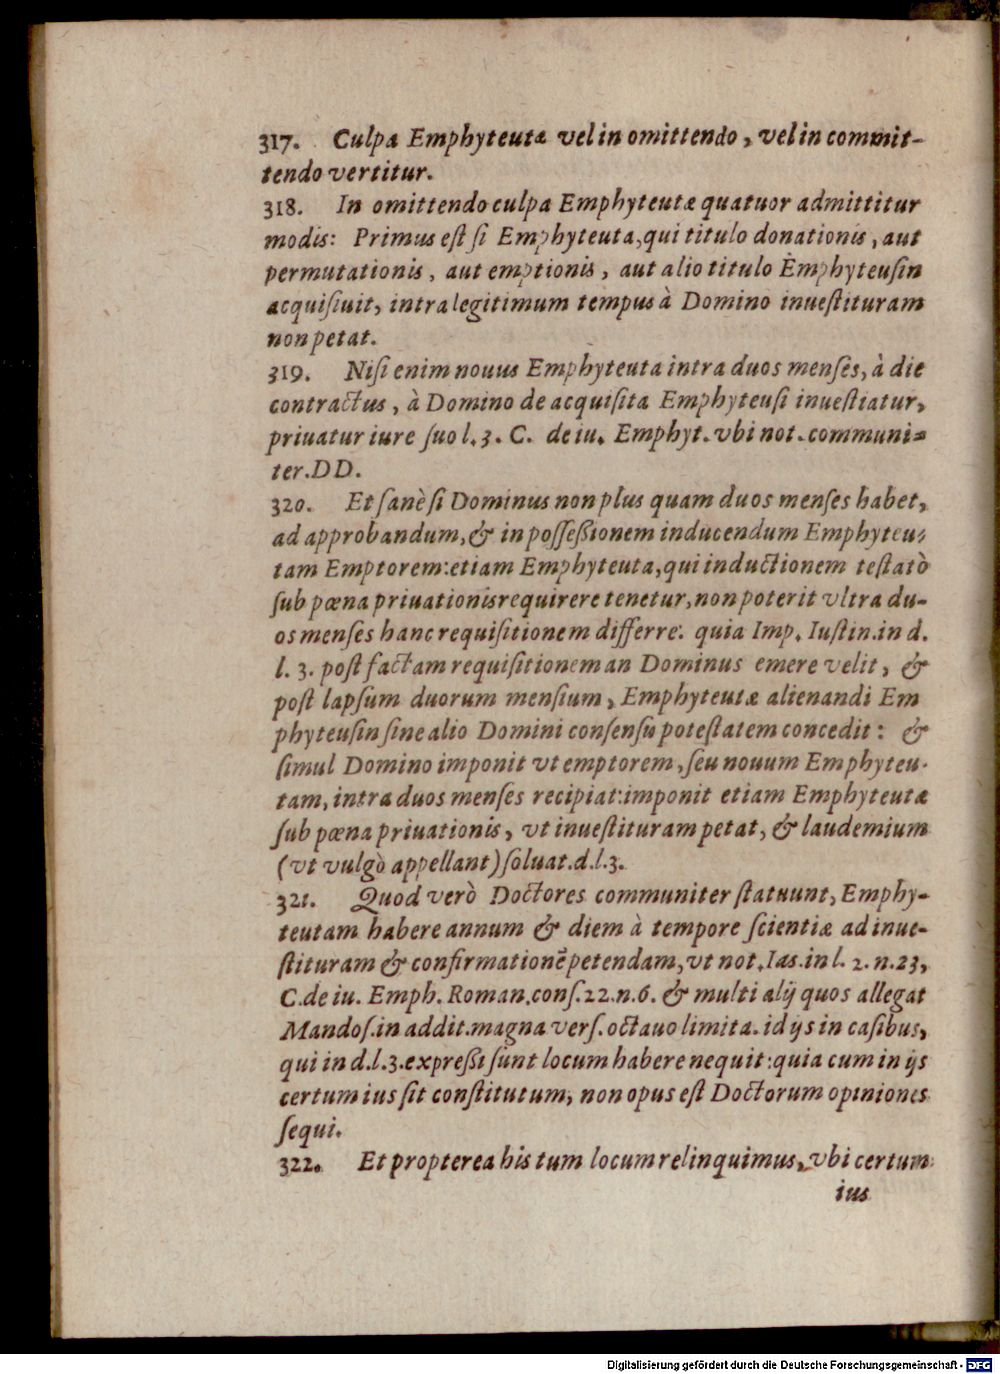 317. Culpa Emphyteutæ vel in omittendo, vel in commit-
tendo vertitur.
318. In omittendo culpa Emphyteutæ quatuor admittitur
modis: Primus eſt ſi Emphyteuta, qui titulo donationis, aut
permutationis, aut emptionis, aut alio titulo Emphyteuſin
acquiſiuit, intra legitimum tempus à Domino inueſtituram
non petat.
319. Niſi enim nouus Emphyteuta intra duos menſes, à die
contractus, à Domino de acquiſita Emphyteuſi inueſtiatur,
priuatur iure ſuo l. 3. C. de iu. Emphyt. vbi not. communi-
ter. DD.
320. Et ſanè ſi Dominus non plus quam duos menſes habet,
ad approbandum, & in poſſeßionem inducendum Emphyteu-
tam Emptorem: etiam Emphyteuta, qui inductionem teſtatò
ſub pœna priuationis requirere tenetur, non poterit vltra du-
os menſes hanc requiſitionem differre: quia Imp. Iuſtin. in d.
l. 3. poſt factam requiſitionem an Dominus emere velit, &
poſt lapſum duorum menſium, Emphyteutæ alienandi Em
phyteuſin ſine alio Domini conſenſu poteſtatem concedit: &
ſimul Domino imponit vt emptorem, ſeu nouum Emphyteu-
tam, intra duos menſes recipiat: imponit etiam Emphyteutæ
ſub pœna priuationis, vt inueſtituram petat, & laudemium
(vt vulgò appellant) ſoluat. d. l. 3.
321. Quod verò Doctores communiter ſtatuunt, Emphy-
teutam habere annum & diem à tempore ſcientiæ ad inue-
ſtituram & confirmationē petendam, vt not. Ias. in l. 2. n. 23,
C. de iu. Emph. Roman. conſ. 22. n. 6. & multi alij quos allegat
Mandoſ. in addit. magna verſ. octauo limita. id ijs in caſibus,
qui in d. l. 3. expreßi ſunt locum habere nequit: quia cum in ijs
certum ius ſit conſtitutum, non opus eſt Doctorum opiniones
ſequi.
322. Et propterea his tum locum relinquimus, vbi certum
ius
Digitalisierung gefördert durch die Deutsche Forschungsgemeinschaft - DFG